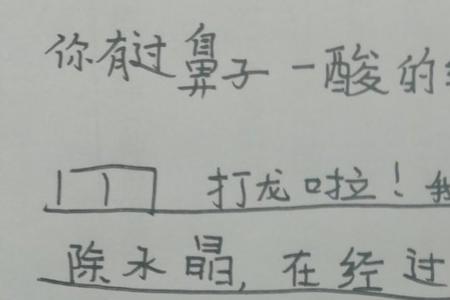 你有过鼻子一酸的
打龙啦！我
陈永晶，在经过